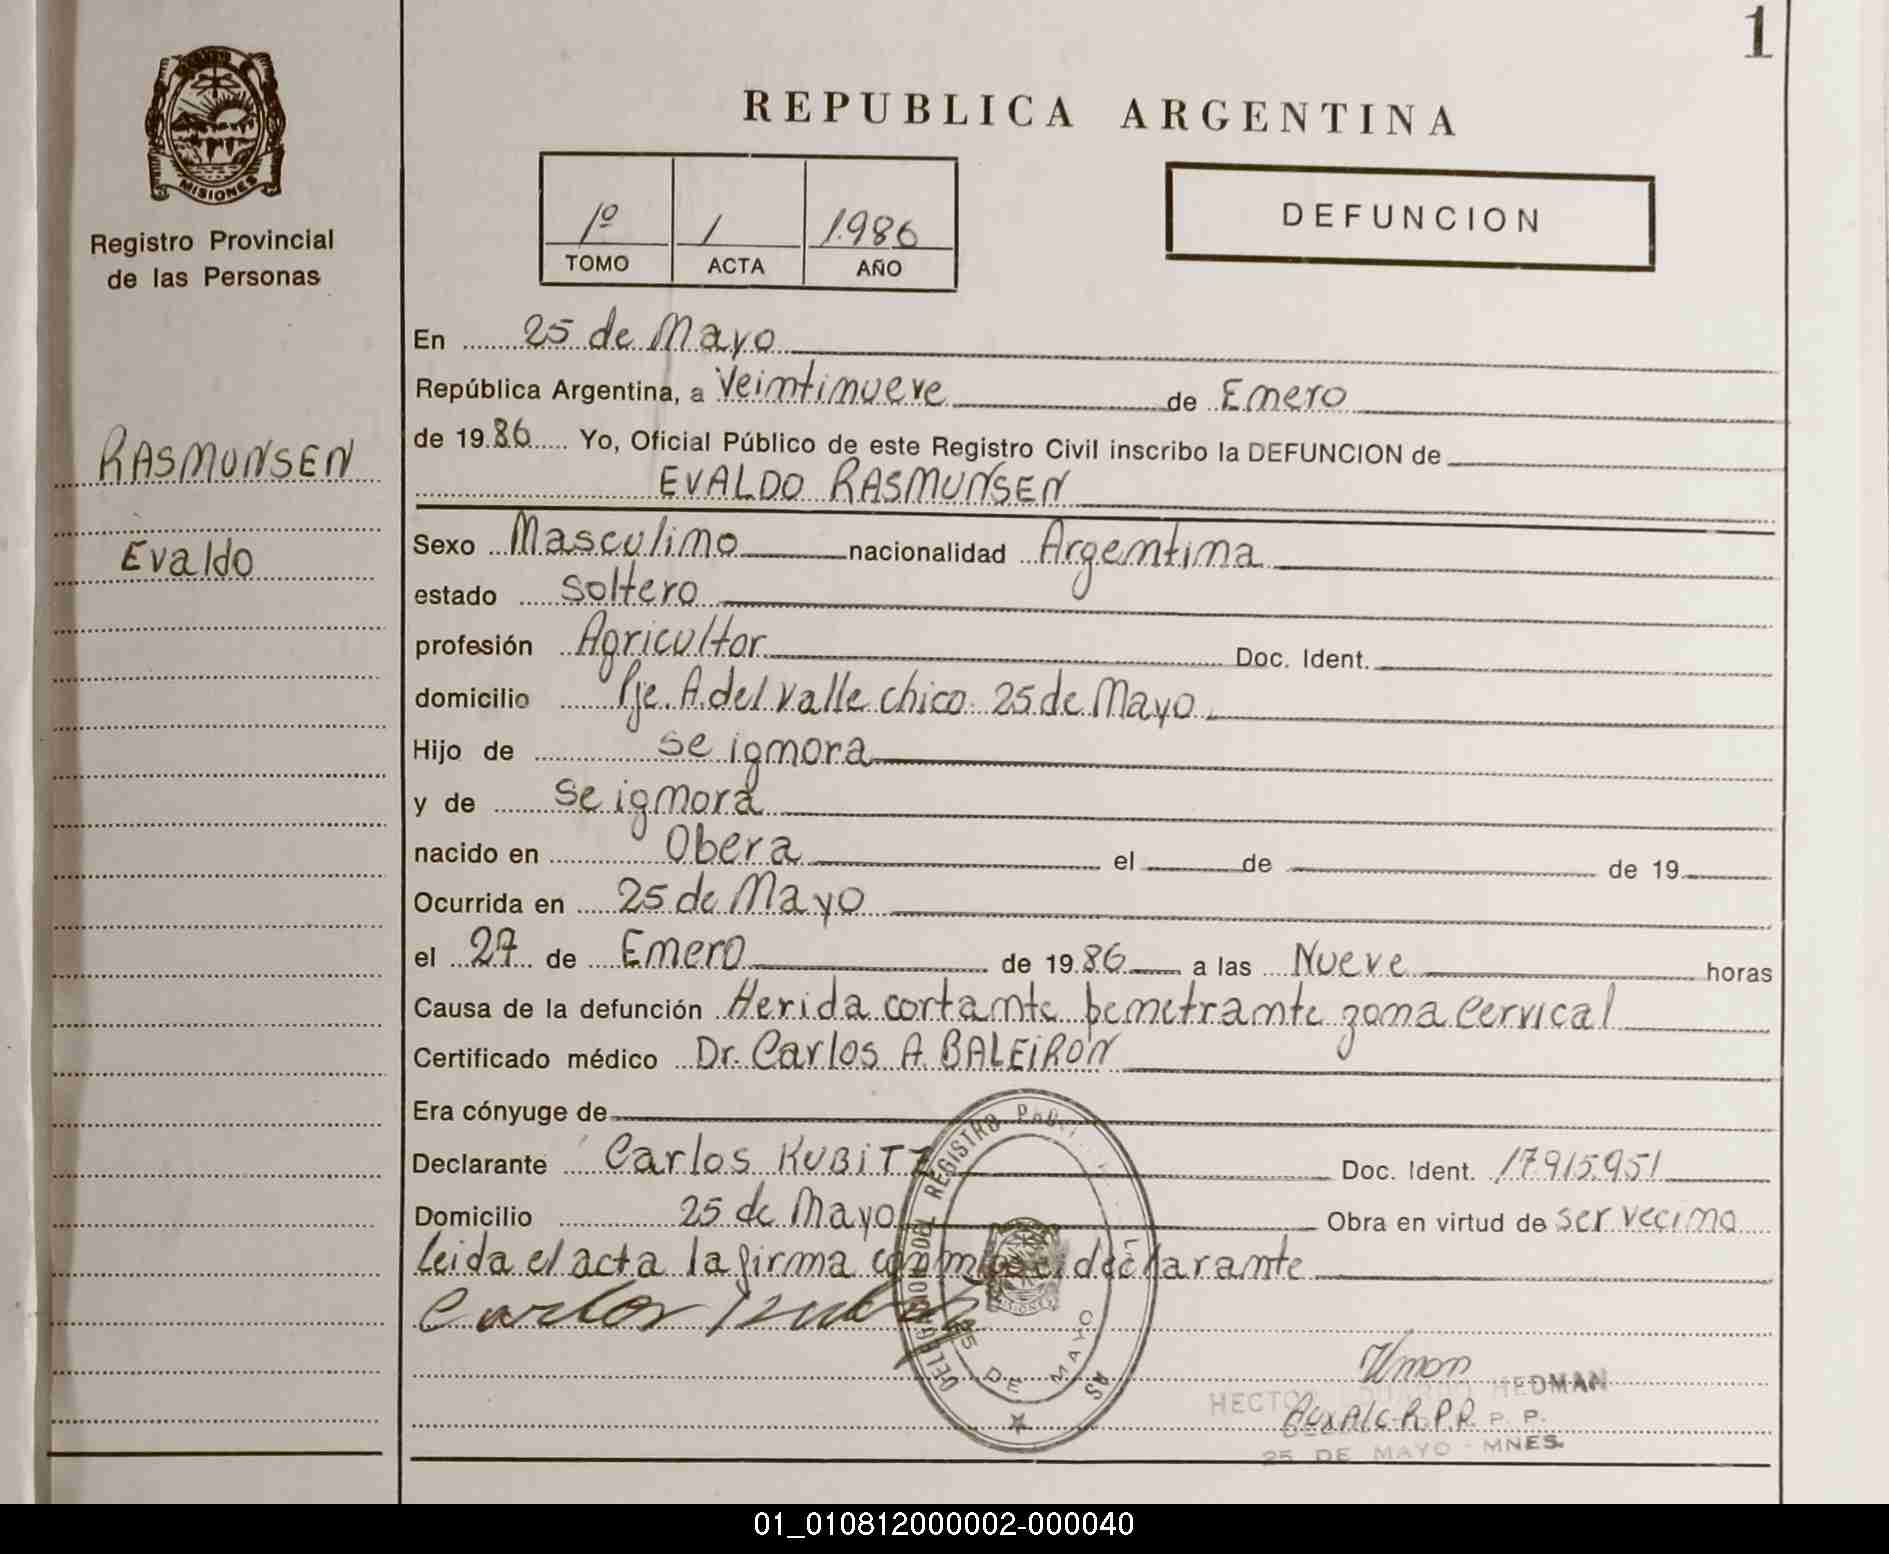 1
MISIONES
Registro Provincial
de las Personas
RASMUNSEN
Evaldo
REPUBLICA ARGENTINA
1º 1 1986
TOMO ACTA AÑO
DEFUNCION
En 25 de Mayo
República Argentina, a Veintinueve de Enero
de 19 86 Yo, Oficial Público de este Registro Civil inscribo la DEFUNCION de
EVALDO RASMUNSEN
Sexo Masculino nacionalidad Argentina
estado Soltero
profesión Agricultor Doc. Ident.
domicilio Pje. A. del Valle chico. 25 de Mayo
Hijo de se ignora
y de se ignora
nacido en Obera el de de 19
Ocurrida en 25 de Mayo
el 27 de Enero de 19 86 a las Nueve horas
Causa de la defunción Herida cortante penetrante zona cervical
Certificado médico Dr. Carlos A. BALEIRON
Era cónyuge de
Declarante Carlos KUBITZ Doc. Ident. 17.915.951
Domicilio 25 de Mayo Obra en virtud de ser vecino
leida el acta la firma declarante
Carlos
DEL REGISTRO
25 DE MAYO
HECTOR EDUARDO HEDMAN
R.P.P.
25 DE MAYO - MNES.
01_010812000002-000040